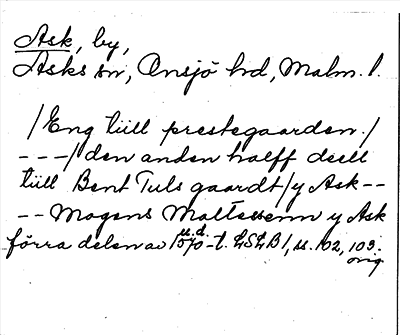 Ask, by,
Asks sn, Onsjö hd, Malm. l.
/Eng tüll prestegaarden./
---/den anden halff deell
tüll Bent Tuls gaardt/y Ask--
--Mogens Maltessenn y Ask
u.d.
förra delen av 1570-t. LSLB 1, ss. 102, 103.
orig.